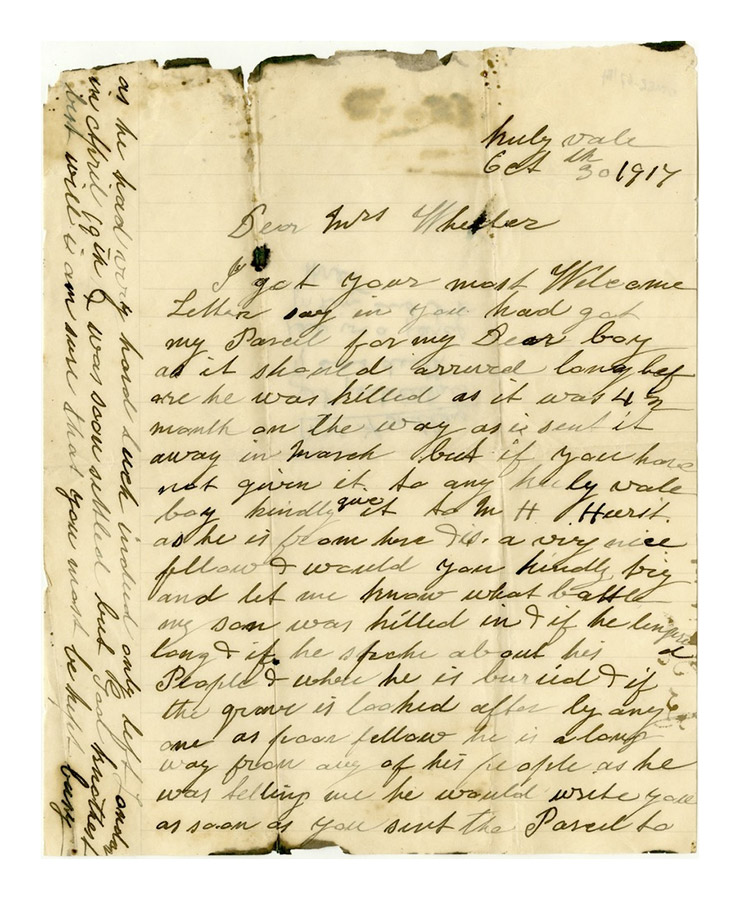 huly vale
Oct 30th 1917
Dear Mrs Wheeler
I got your most Welcome
Letter say in you had got
my Parcel for my Dear boy
as it should arrived long bef
ore he was killed as it was 4½
month on the way as i sent it
away in March but if you have
not given it to any huly vale
boy kindly give it to M H Hurst.
as he is from here & is a very nice
fellow & would you kindly try
and let me know what battle
my son was killed in & if he lingered
long & if he spoke about his
People & where he is buried & if
the grave is looked after by any
one as poor fellow he is a long
way from any of his people as he
was telling me he would write you
as soon as you sent the Parcel to
as he had very hard luck indeed only left
in April 19th & was soon settled but God knoweth
best will i am sure that you must be kept busy